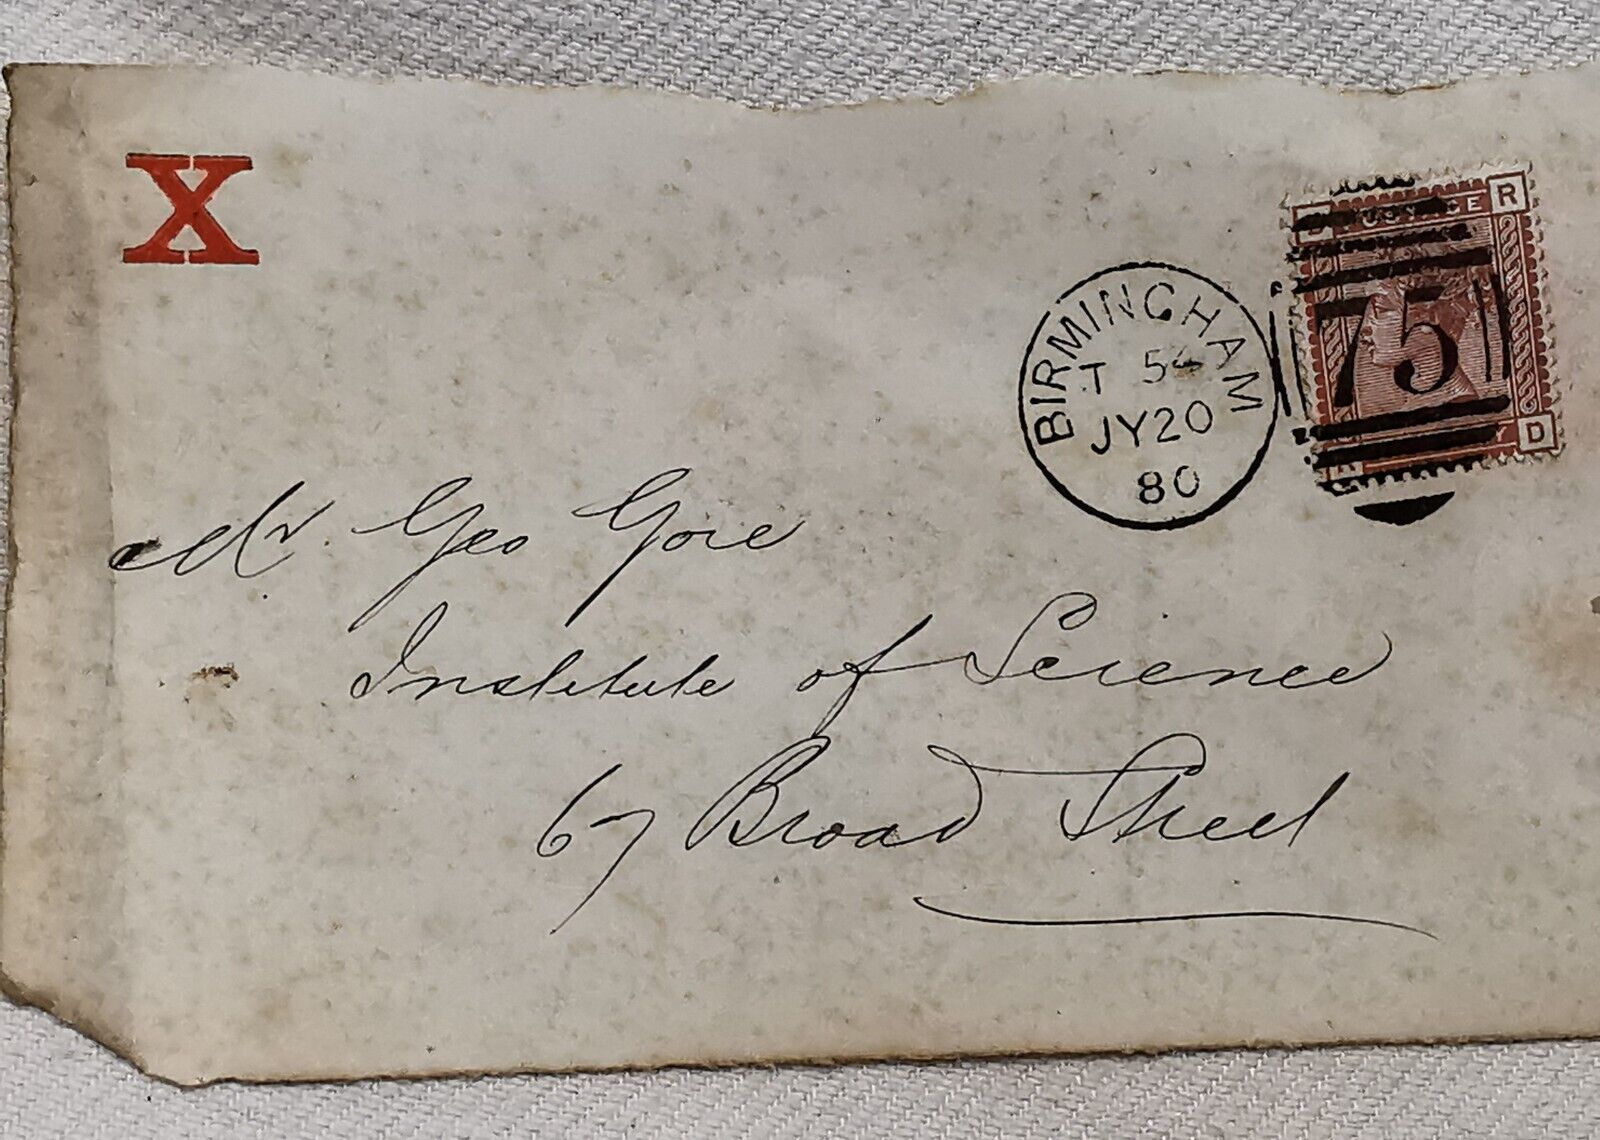 X
POSTAGE R
BIRMINGHAM
T 54
JY20
80
75
D
Mr. Geo Gore
Institute of Science
67 Broad Street